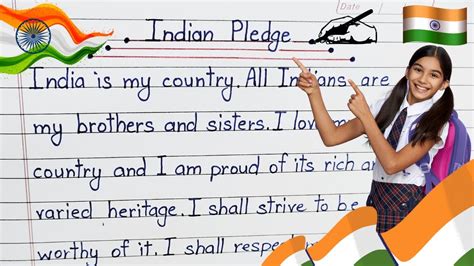 Date
Indian Pledge
India is my country. All Indians are
my brothers and sisters. I love
country and I am proud of its rich
varied heritage. I shall strive to be
worthy of it. I shall